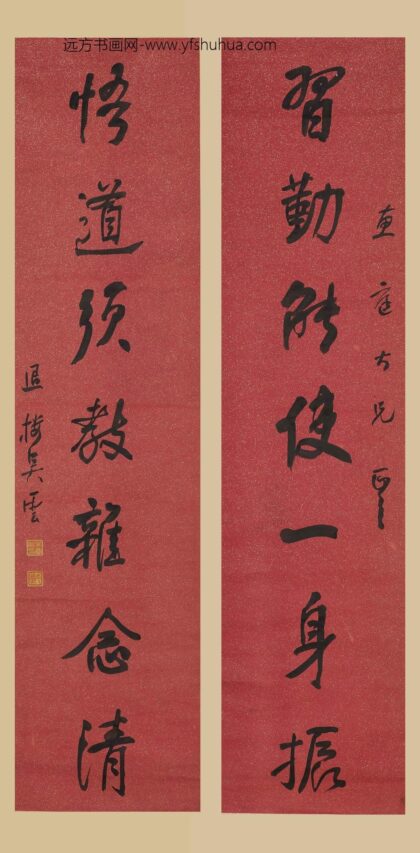 远方书画网-www.yfshuhua.com
習勤能使一身振
直庭大兄正之
悟道须教雜念清
退樓吴雲